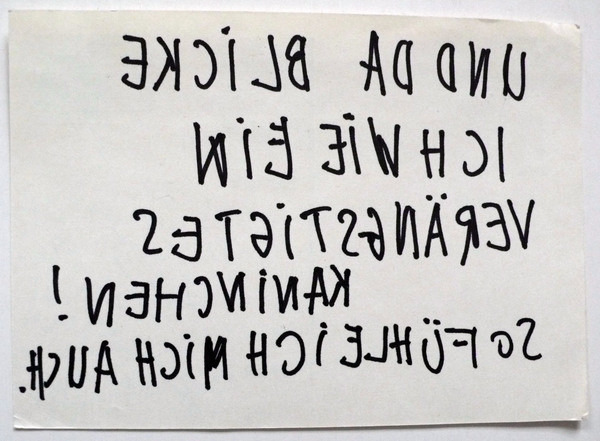 UND DA BLICKE
ICH WIE EIN
VERÄNGSTIGTES
KANINCHEN!
SO FÜHLE ICH MICH AUCH.